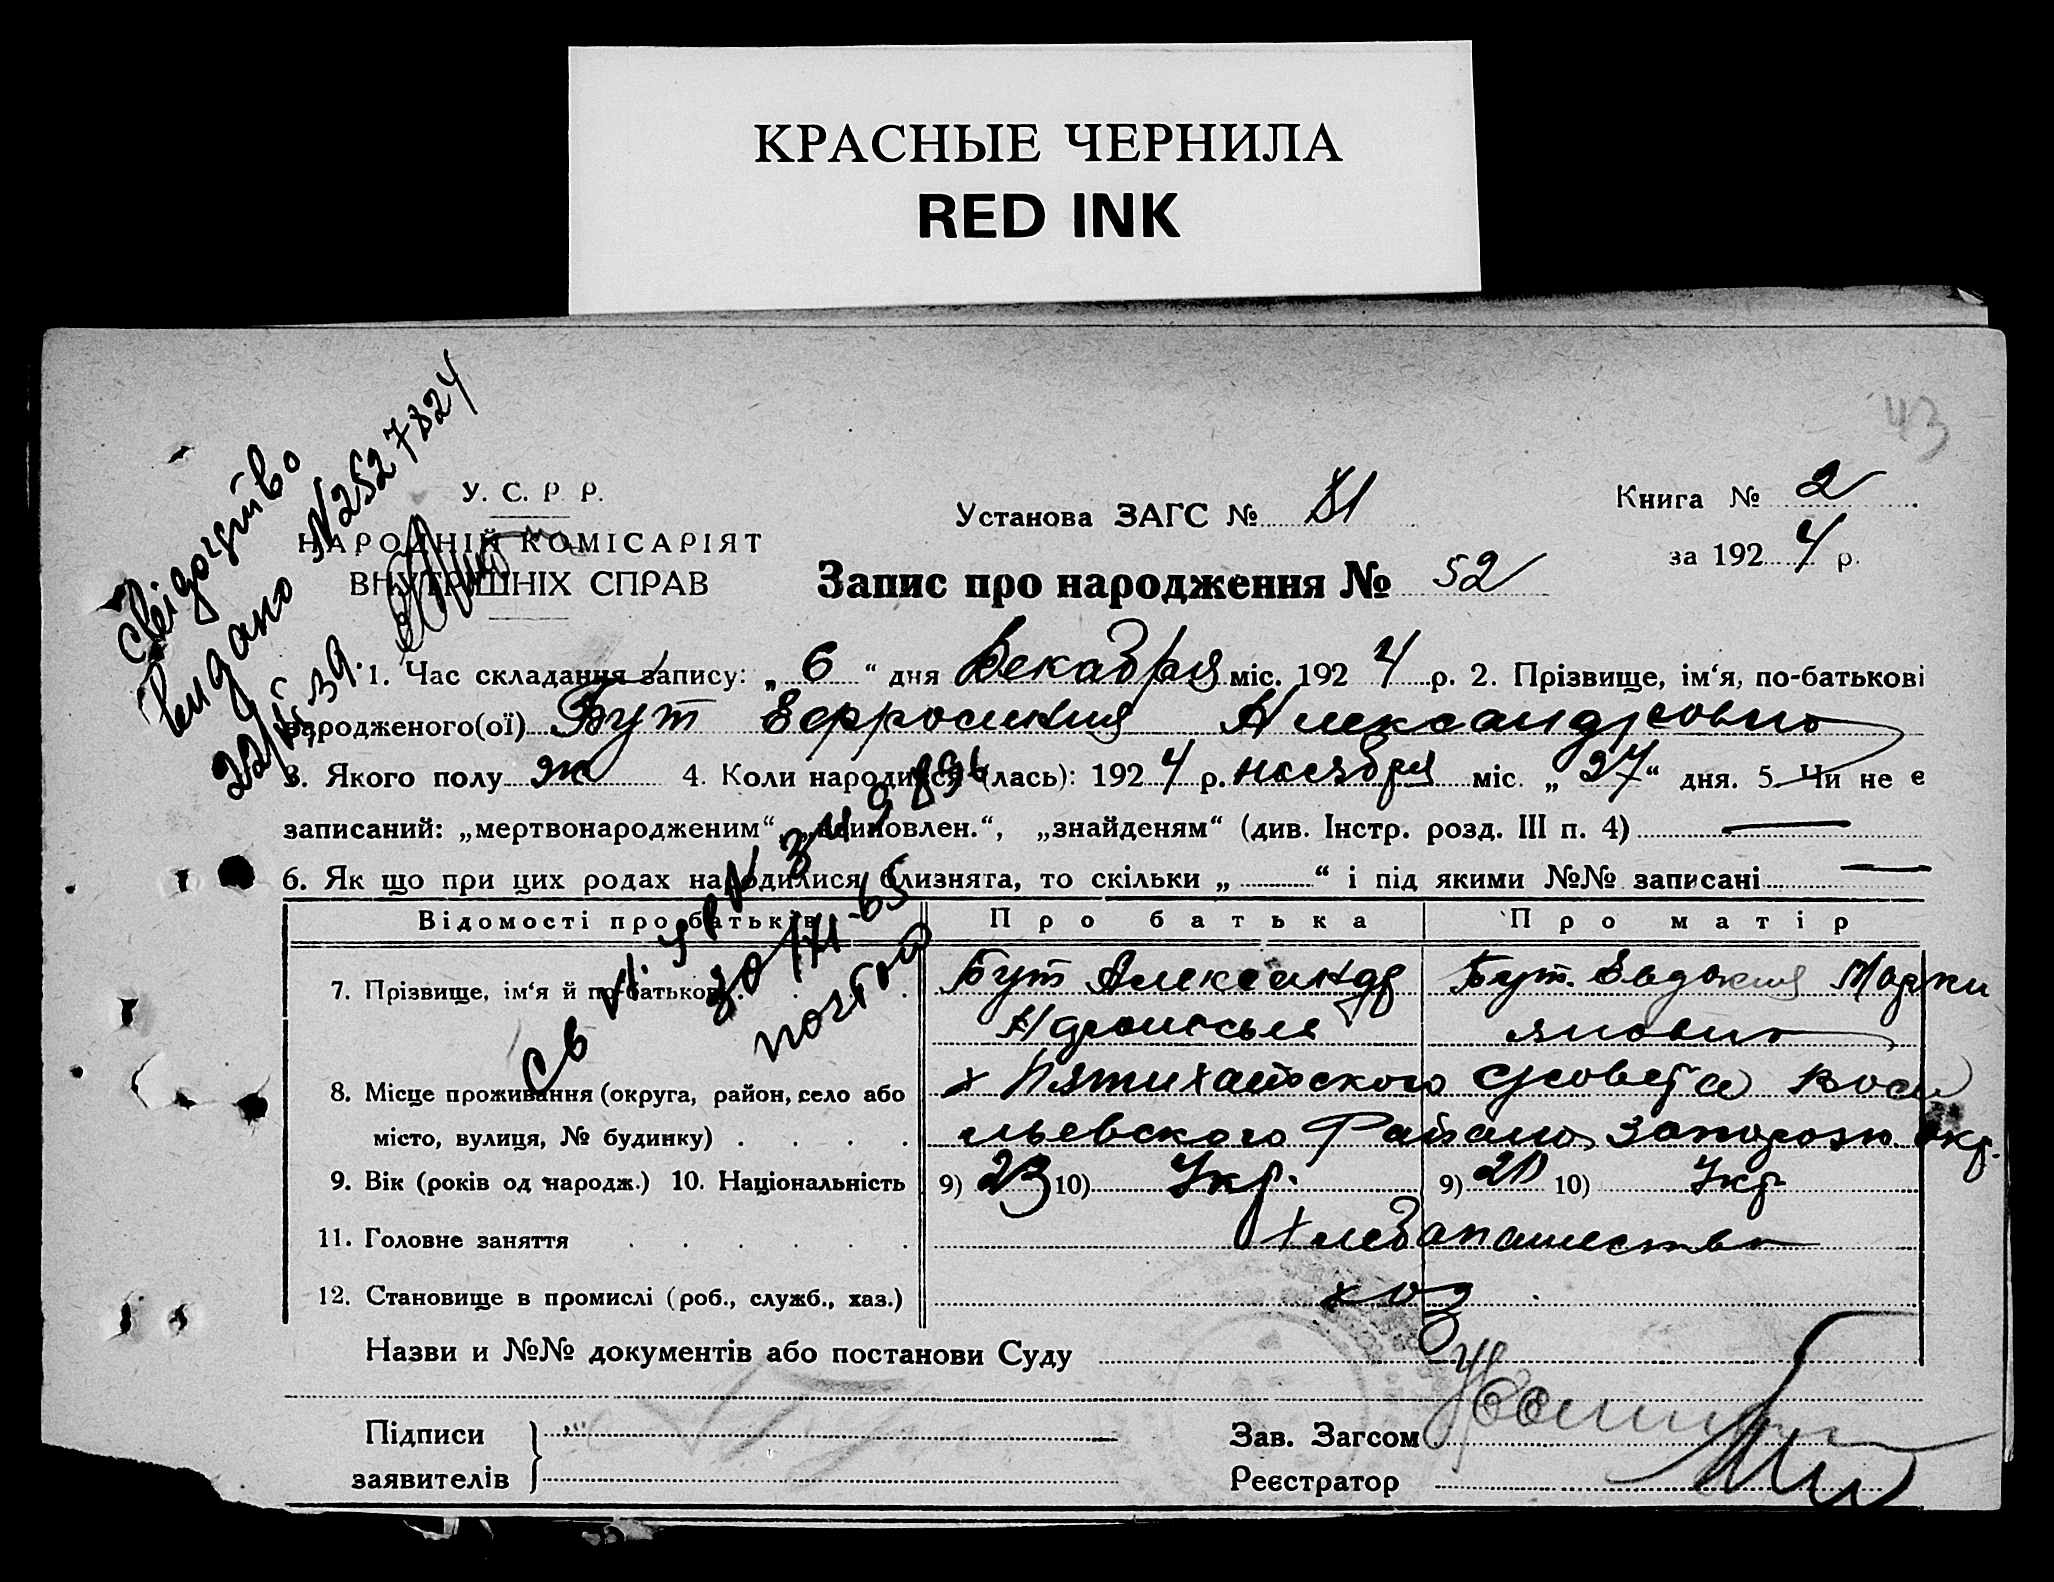 КРАСНЫЕ ЧЕРНИЛА
RED INK
43
Свідоцтво
видано №2527824
У. С. Р. Р.
НАРОДНІЙ КОМІСАРІЯТ
ВНУТРІШНІХ СПРАВ
Установа ЗАГС №
Книга № 2
за 1924 р.
Запис про народження № 52
1. Час складання запису: „ 6 “ дня Декабря міс. 1924 р. 2. Прізвище, ім‘я, по-батькові
народженого(ої) Бут Ефросиния Александровна
3. Якого полу ж 4. Коли народився (лась): 1924 р. ноября міс. „ 27 “ дня. 5. Чи не є
записаний: „мертвонародженим“, „всиновлен.“, „знайденям“ (див. Інстр. розд. III п. 4) —
6. Як що при цих родах народилися близнята, то скільки „ “ і під якими №№ записані —
Відомості про батьків Про батька Про матір
7. Прізвище, ім‘я й по-батькові Бут Александр Бут Евдокия Марки
яновна
8. Місце проживання (округа, район, село або х Пятихатского с/совета Васи
місто, вулиця, № будинку) льевского Района Запорож. окр.
9. Вік (років од народж.) 10. Національність 9) 23 10) Укр. 9) 20 10) Укр
11. Головне заняття Хлебопашество
12. Становище в промислі (роб., служб., хаз.) хоз
почтой
Назви и №№ документів або постанови Суду
Підписи
заявителів
Зав. Загсом
Реєстратор